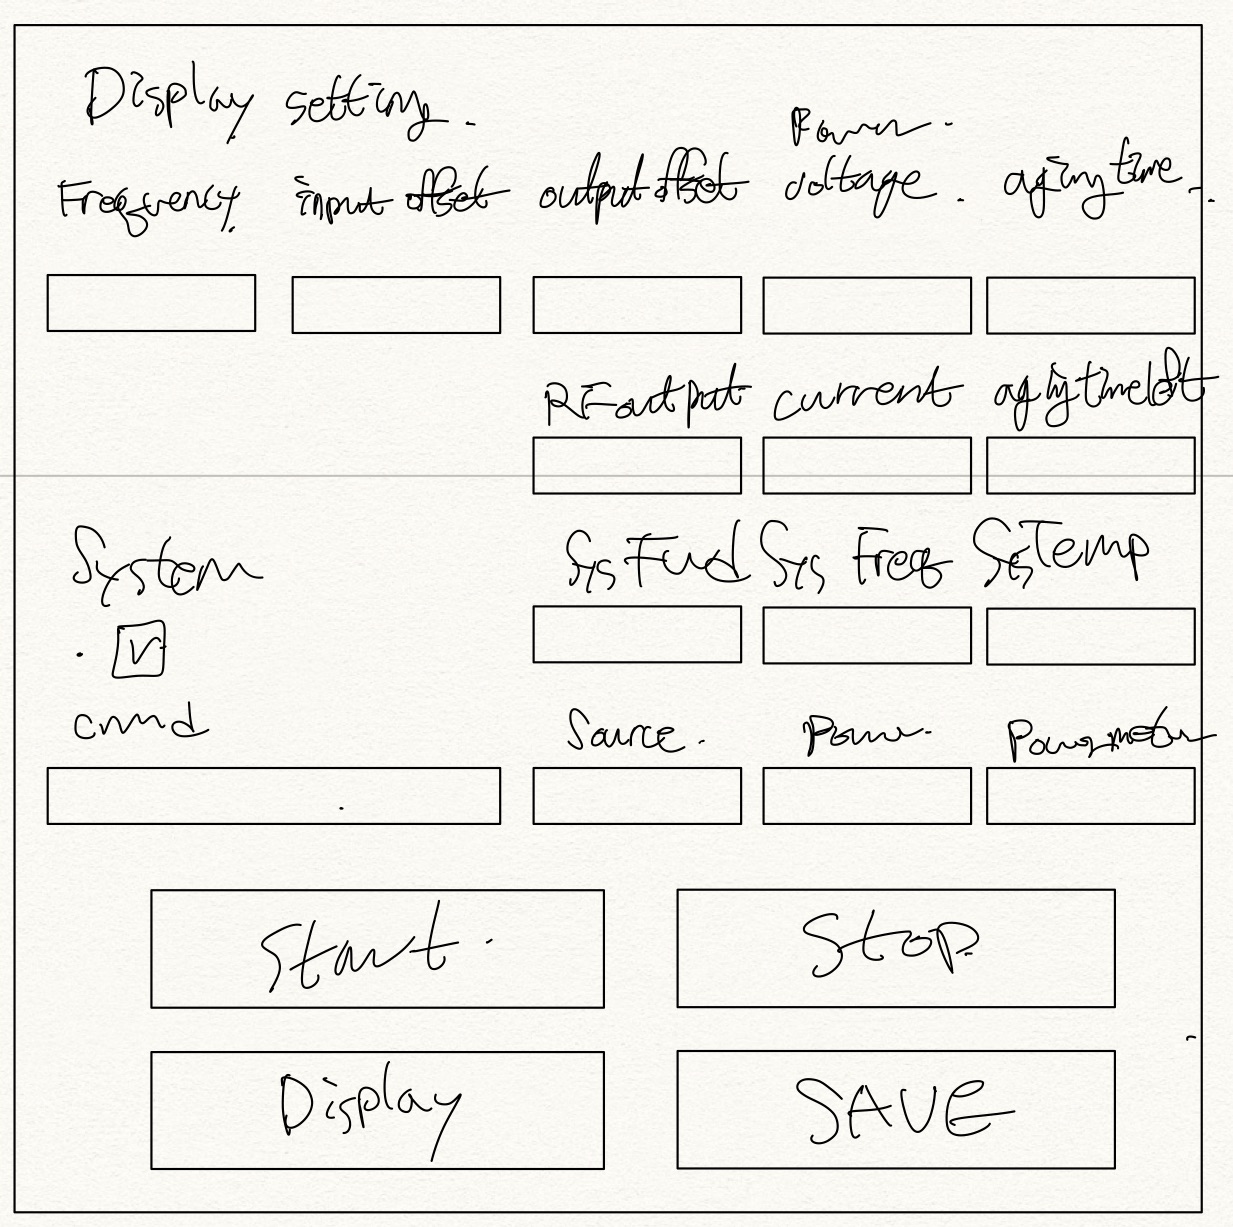 Display setting.
Power
Frequency input offset output offset voltage aging time
RF output current aging time left
System Sys Fwd Sys Freq Sys Temp
cmmd Source Power Powermeter
Start Stop
Display SAVE